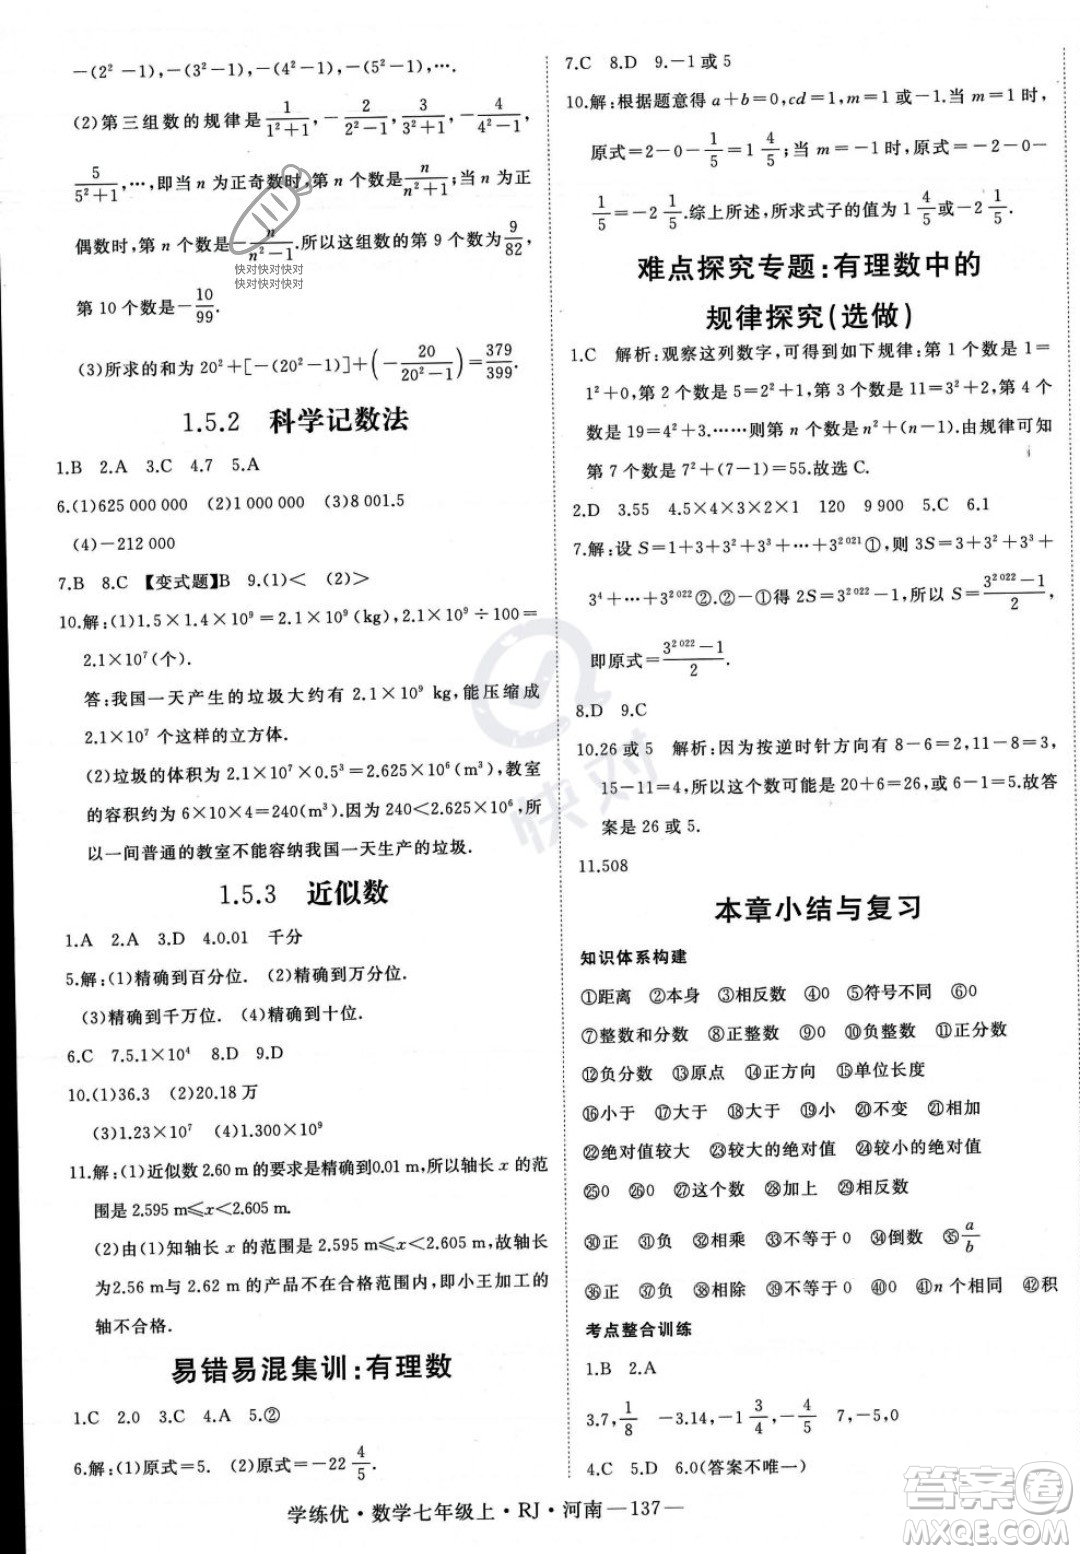 −(2²−1),−(3²−1),−(4²−1),−(5²−1),….
(2)第三组数的规律是1/(1²+1),−2/(2²−1),3/(3²+1),−4/(4²−1),
5/(5²+1),…,即当 n 为正奇数时,第 n 个数是n/(n²+1);当 n 为正
偶数时,第 n 个数是−n/(n²−1).所以这组数的第 9 个数是9/82,
快对快对快对
快对快对快对
第 10 个数是−10/99.
(3)所求的和为 20²+[−(20²−1)]+(−20/(20²−1))=379/399.
1.5.2 科学记数法
1.B 2.A 3.C 4.7 5.A
6.(1)625 000 000 (2)1 000 000 (3)8 001.5
(4)−212 000
7.B 8.C 【变式题】B 9.(1)< (2)>
10.解:(1)1.5×1.4×10⁹=2.1×10⁹(kg),2.1×10⁹÷100=
2.1×10⁷(个).
答:我国一天产生的垃圾大约有 2.1×10⁹ kg,能压缩成
2.1×10⁷ 个这样的立方体.
(2)垃圾的体积为 2.1×10⁷×0.5³=2.625×10⁶(m³),教室
的容积约为 6×10×4=240(m³).因为 240<2.625×10⁶,所
以一间普通的教室不能容纳我国一天生产的垃圾.
1.5.3 近似数
1.A 2.A 3.D 4.0.01 千分
5.解:(1)精确到百分位. (2)精确到万分位.
(3)精确到千万位. (4)精确到十位.
6.C 7.5.1×10⁴ 8.D 9.D
10.(1)36.3 (2)20.18 万
(3)1.23×10⁷ (4)1.300×10⁹
11.解:(1)近似数 2.60 m 的要求是精确到0.01 m,所以轴长 x 的范
围是 2.595 m⩽x<2.605 m.
(2)由(1)知轴长 x 的范围是 2.595 m⩽x<2.605 m,故轴
长为2.56 m与 2.62 m 的产品不在合格范围内,即小王加工的
轴不合格.
易错易混集训:有理数
1.C 2.0 3.C 4.A 5.②
6.解:(1)原式=5. (2)原式=−22 4/5.
7.C 8.D 9.−1 或 5
10.解:根据题意得 a+b=0,cd=1,m=1 或−1.当 m=1 时,
原式=2−0−1/5=1 4/5;当 m=−1 时,原式=−2−0−
1/5=−2 1/5.综上所述,所求式子的值为 1 4/5或−2 1/5.
难点探究专题:有理数中的
规律探究(选做)
1.C 解析:观察这列数字,可得到如下规律:第 1 个数是 1=
1²+0,第 2 个数是 5=2²+1,第 3 个数是 11=3²+2,第 4 个
数是 19=4²+3.……则第 n 个数是 n²+(n−1).由规律可知
第 7 个数是 7²+(7−1)=55.故选 C.
2.D 3.55 4.5×4×3×2×1 120 9 900 5.C 6.1
7.解:设 S=1+3+3²+3³+…+3²⁰²¹①,则 3S=3+3²+3³+
3⁴+…+3²⁰²²②.②−①得 2S=3²⁰²²−1,所以 S=(3²⁰²²−1)/2,
即原式=(3²⁰²²−1)/2.
8.D 9.C
10.26 或 5 解析:因为按逆时针方向有 8−6=2,11−8=3,
15−11=4,所以这个数可能是 20+6=26,或 6−1=5.故答
案是 26 或 5.
11.508
本章小结与复习
知识体系构建
①距离 ②本身 ③相反数 ④0 ⑤符号不同 ⑥0
⑦整数和分数 ⑧正整数 ⑨0 ⑩负整数 ⑪正分数
⑫负分数 ⑬原点 ⑭正方向 ⑮单位长度
⑯小于 ⑰大于 ⑱大于 ⑲小 ⑳不变 ㉑相加
㉒绝对值较大 ㉓较大的绝对值 ㉔较小的绝对值
㉕0 ㉖0 ㉗这个数 ㉘加上 ㉙相反数
㉚正 ㉛负 ㉜相乘 ㉝不等于 0 ㉞倒数 ㉟a/b
㊱正 ㊲负 ㊳相除 ㊴不等于 0 ㊵0 ㊶n 个相同 ㊷积
考点整合训练
1.B 2.A
3.7,1/8 −3.14,−1 3/4,−4/5 7,−5,0
4.C 5.D 6.0(答案不唯一)
学练优·数学七年级上·RJ·河南—137—
快对
答案圈
MXQE.COM